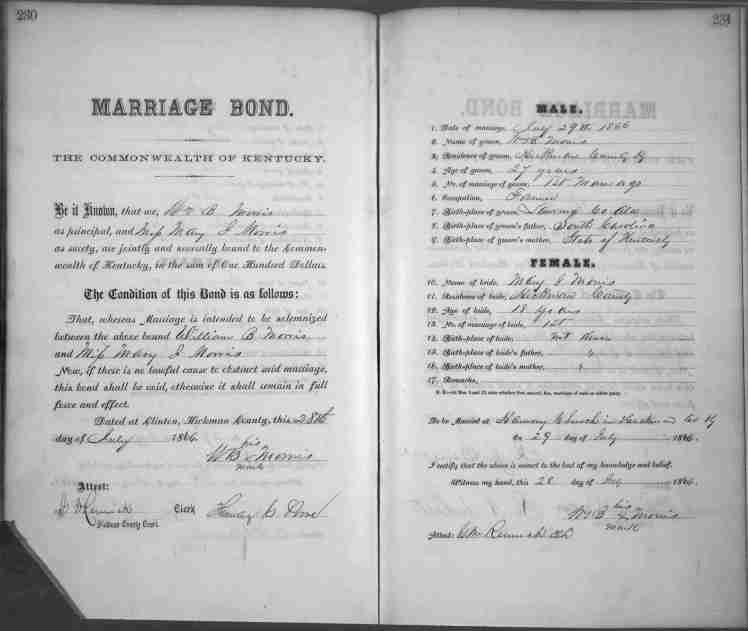 230
MARRIAGE BOND.
THE COMMONWEALTH OF KENTUCKY.
Be it Known, that we, Wm B Morris
as principal, and Miss Mary J Morris
as surety, are jointly and severally bound to the Common-
wealth of Kentucky, in the sum of One Hundred Dollars.
The Condition of this Bond is as follows:
That, whereas Marriage is intended to be solemnized
between the above bound William B Morris
and Miss Mary J Morris
Now, if there is no lawful cause to obstruct said marriage,
this bond shall be void, otherwise it shall remain in full
force and effect.
Dated at Clinton, Hickman County, this 28th
day of July 1866
his
WB x Morris
mark
Attest:
Clerk
Hickman County Court.
231
MALE.
1. Date of marriage, July 29th 1866
2. Name of groom, WB Morris
3. Residence of groom, Hickman County Ky
4. Age of groom, 27 years
5. No. of marriage of groom, 1st Marriage
6. Occupation, Farmer
7. Birth-place of groom, Co Ala
8. Birth-place of groom's father, South Carolina
9. Birth-place of groom's mother, State of Kentucky
FEMALE.
10. Name of bride, Mary J Morris
11. Residence of bride, Hickman County
12. Age of bride, 18 years
13. No. of marriage of bride, 1st
14. Birth-place of bride, Not Known
15. Birth-place of bride's father, "
16. Birth-place of bride's mother, "
17. Remarks,
To be Married at Church in Hickman Co Ky
On 29 day of July 1866.
I certify that the above is correct to the best of my knowledge and belief.
Witness my hand, this 28 day of July 1866.
his
WB x Morris
mark
Attest: